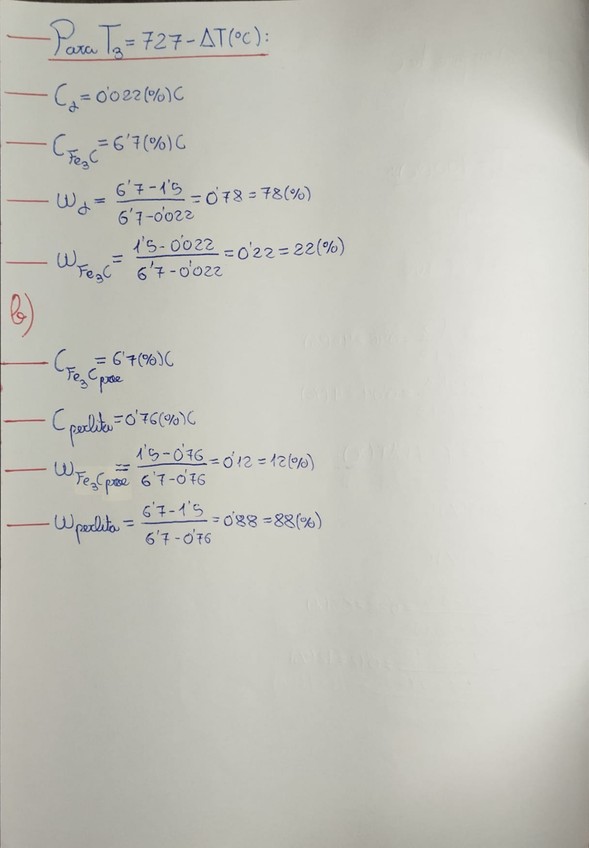 Para T₃ = 727 - ΔT(°C):
C_α = 0'022(%)C
C_Fe₃C = 6'7(%)C
ω_α = (6'7 - 1'5)/(6'7 - 0'022) = 0'78 = 78(%)
ω_Fe₃C = (1'5 - 0'022)/(6'7 - 0'022) = 0'22 = 22(%)
b)
C_Fe₃C proe = 6'7(%)C
C perlita = 0'76(%)C
ω_Fe₃C proe = (1'5 - 0'76)/(6'7 - 0'76) = 0'12 = 12(%)
ω perlita = (6'7 - 1'5)/(6'7 - 0'76) = 0'88 = 88(%)